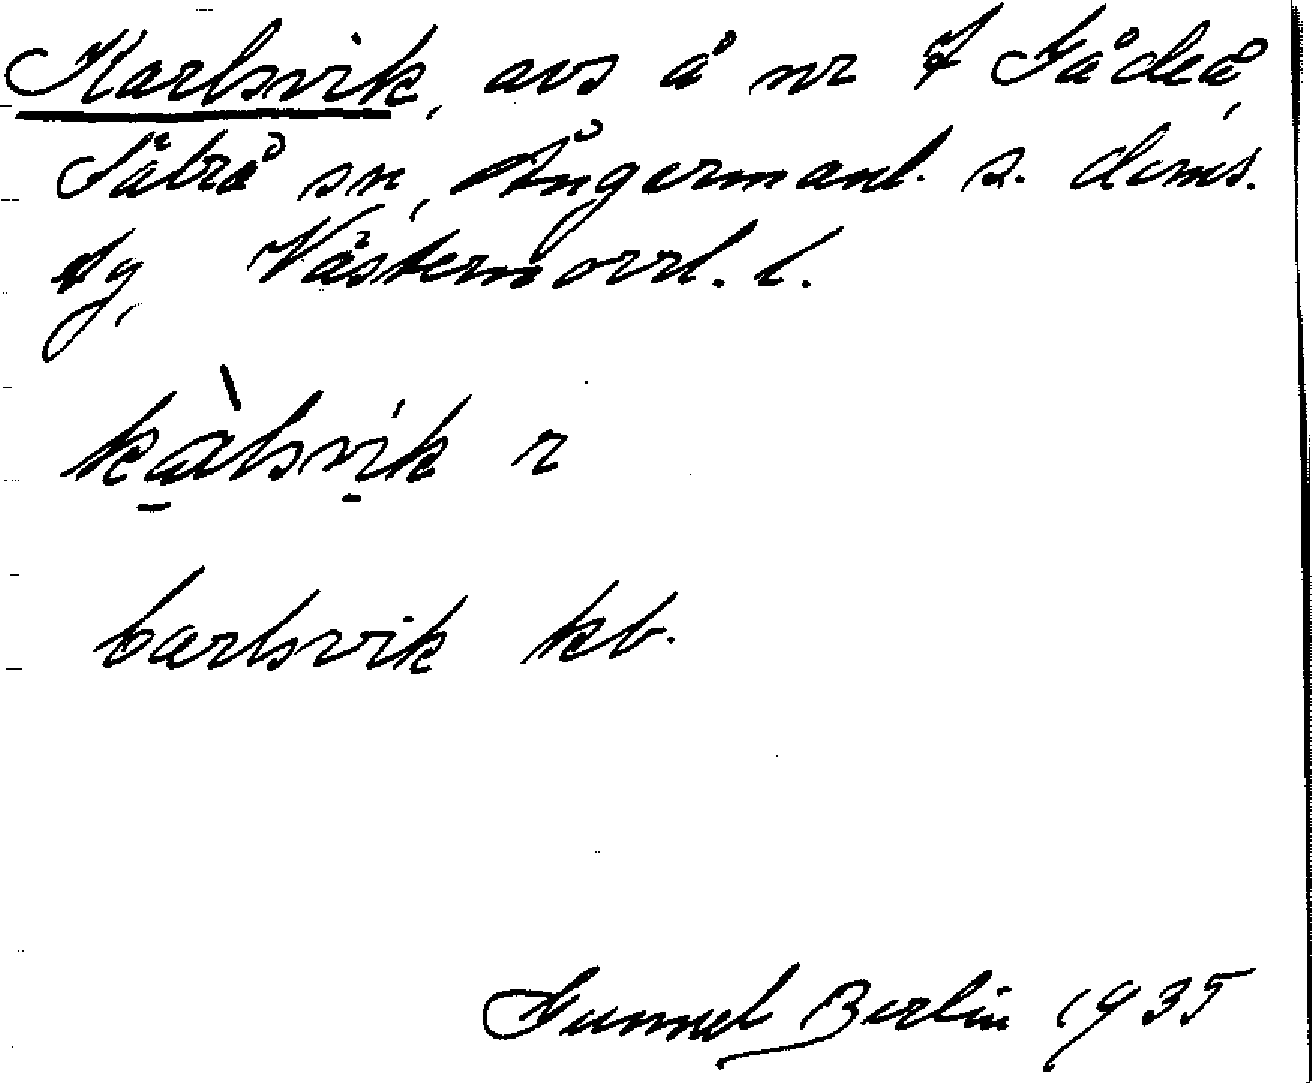 Karlsvik, avs å nr 7 Gådeå,
Säbrå sn, Ångermanl. s. doms.
sg, Västernorrl. l.
kàlsvik 2
Carlsvik kb.
Gunnel Berlin 1935